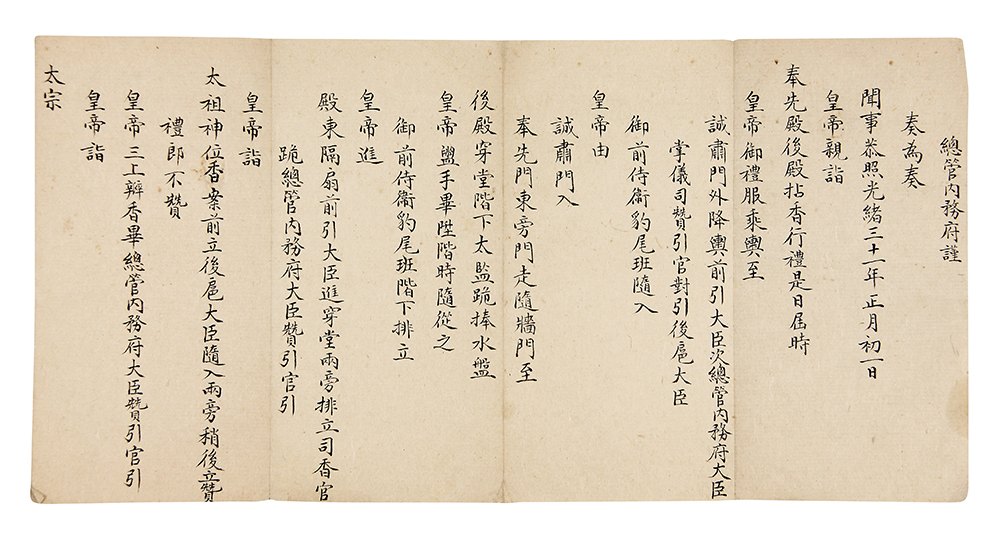 總管内務府謹
奏為奏
聞事恭照光緒三十一年正月初一日
皇帝親詣
奉先殿後殿拈香行禮是日屆時
皇帝御禮服乘輿至
誠肅門外降輿前引大臣次總管内務府大臣
掌儀司贊引官對引後扈大臣
御前侍衛豹尾班隨入
皇帝由
誠肅門入
奉先門東旁門走隨牆門至
後殿穿堂階下太監跪捧水盤
皇帝盥手畢陞階時隨從之
御前侍衛豹尾班階下排立
皇帝進
殿東隔扇前引大臣進穿堂兩旁排立司香官
跪總管内務府大臣贊引官引
皇帝詣
太祖神位香案前立後扈大臣隨入兩旁稍後立贊
禮郎不贊
皇帝三上瓣香畢總管内務府大臣贊引官引
皇帝詣
太宗